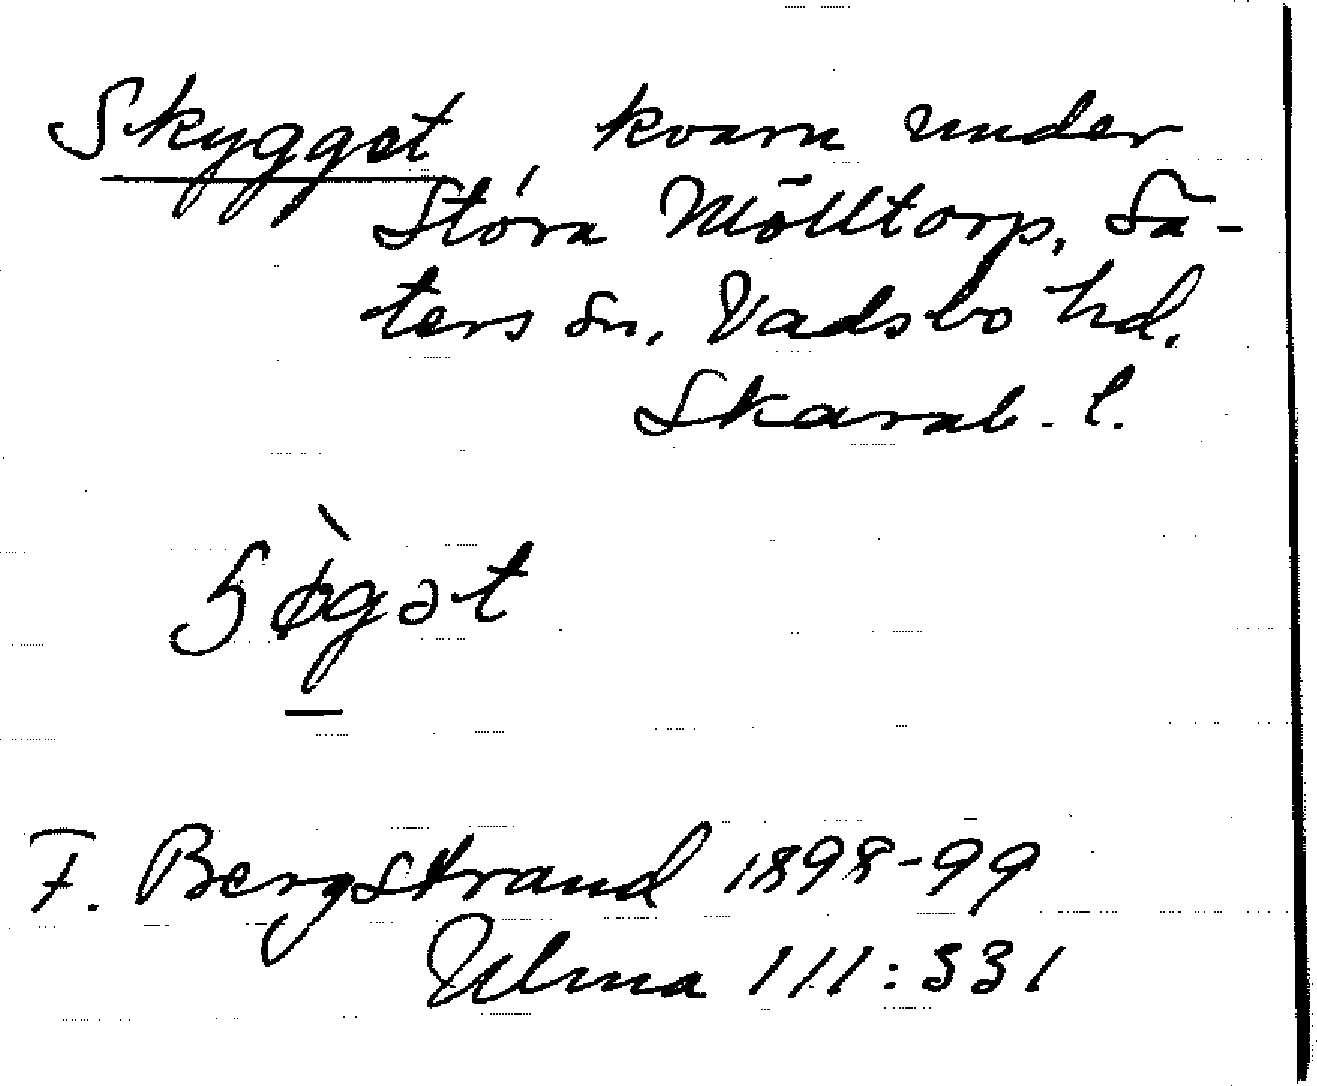 Skygget, kvarn under
Stora Mölltorp, Sä-
ters sn. Vadsbo hd.
Skarab. l.
ʂø̀gət
F. Bergstrand 1898-99
Ulma 111:331